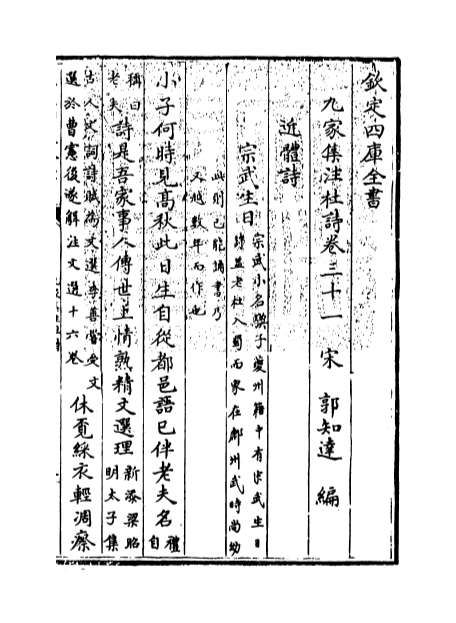 欽定四庫全書
九家集注杜詩卷三十一　宋　郭知達　編
近體詩
宗武生日 宗武小名驥子夔州籍中有宗武生日
詩蓋老杜入蜀而家在鄜州武時尚幼
此則已能誦書乃
又越數年而作也
小子何時見高秋此日生自從都邑語已伴老夫名 禮
自
稱曰
老夫 詩是吾家事人傳世上情熟精文選理 新添梁昭
明太子集
古人文詞詩賦為文選李善嘗受文
選於曹憲後遂解注文選十六卷 休覓綵衣輕凋瘵